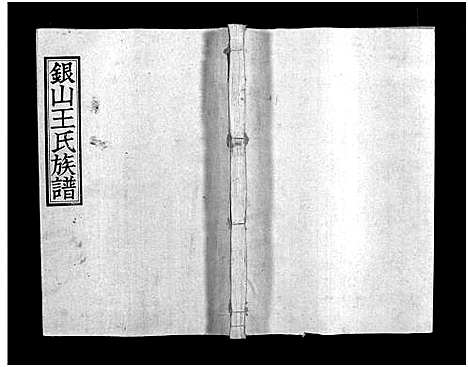 銀山王氏族譜